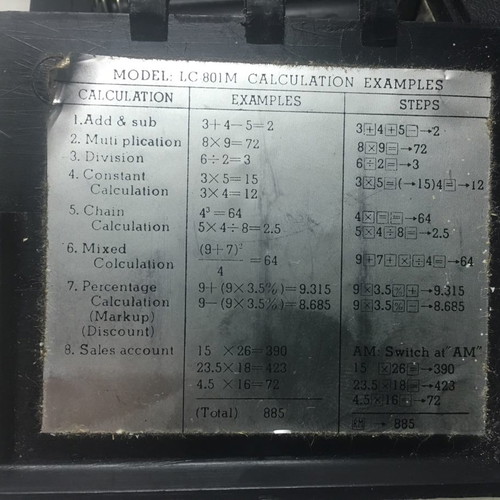 MODEL: LC 801M CALCULATION EXAMPLES
CALCULATION EXAMPLES STEPS
1.Add & sub 3+4−5=2 3[+]4[+]5[−]→2
2. Muti plication 8×9=72 8[×]9[=]→72
3. Division 6÷2=3 6[÷]2[=]→3
4. Constant 3×5=15 3[×]5[=](→15)4[=]→12
Calculation 3×4=12
5. Chain 4³=64 4[×][=][=]→64
Calculation 5×4÷8=2.5 5[×]4[÷]8[=]→2.5
6. Mixed (9+7)² 9[+]7[+][×][÷]4[=]→64
Colculation =64
4
7. Percentage 9+(9×3.5%)=9.315 9[×]3.5[%][+]→9.315
Calculation 9−(9×3.5%)=8.685 9[×]3.5[%][−]→8.685
(Markup)
(Discount)
8. Sales account 15 ×26=390 AM: Switch at "AM"
23.5×18=423 15 [×]26[=]→390
4.5 ×16=72 23.5[×]18[=]→423
4.5[×]16[=]→72
(Total) 885 → 885